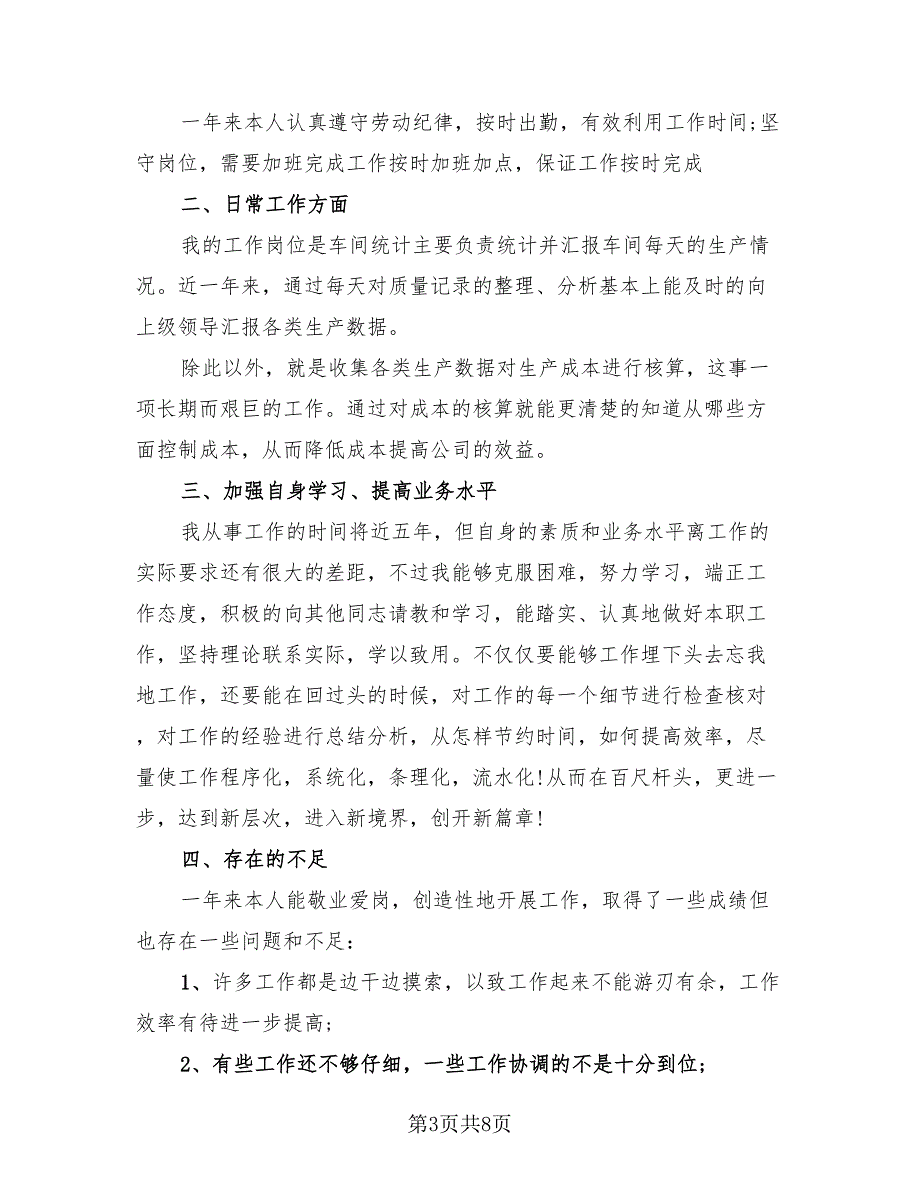 一年来本人认真遵守劳动纪律，按时出勤，有效利用工作时间;坚
守岗位，需要加班完成工作按时加班加点，保证工作按时完成
二、日常工作方面
我的工作岗位是车间统计主要负责统计并汇报车间每天的生产情
况。近一年来，通过每天对质量记录的整理、分析基本上能及时的向
上级领导汇报各类生产数据。
除此以外，就是收集各类生产数据对生产成本进行核算，这事一
项长期而艰巨的工作。通过对成本的核算就能更清楚的知道从哪些方
面控制成本，从而降低成本提高公司的效益。
三、加强自身学习、提高业务水平
我从事工作的时间将近五年，但自身的素质和业务水平离工作的
实际要求还有很大的差距，不过我能够克服困难，努力学习，端正工
作态度，积极的向其他同志请教和学习，能踏实、认真地做好本职工
作，坚持理论联系实际，学以致用。不仅仅要能够工作埋下头去忘我
地工作，还要能在回过头的时候，对工作的每一个细节进行检查核对
，对工作的经验进行总结分析，从怎样节约时间，如何提高效率，尽
量使工作程序化，系统化，条理化，流水化!从而在百尺杆头，更进一
步，达到新层次，进入新境界，创开新篇章!
四、存在的不足
一年来本人能敬业爱岗，创造性地开展工作，取得了一些成绩但
也存在一些问题和不足：
1、许多工作都是边干边摸索，以致工作起来不能游刃有余，工作
效率有待进一步提高;
2、有些工作还不够仔细，一些工作协调的不是十分到位;
第3页共8页